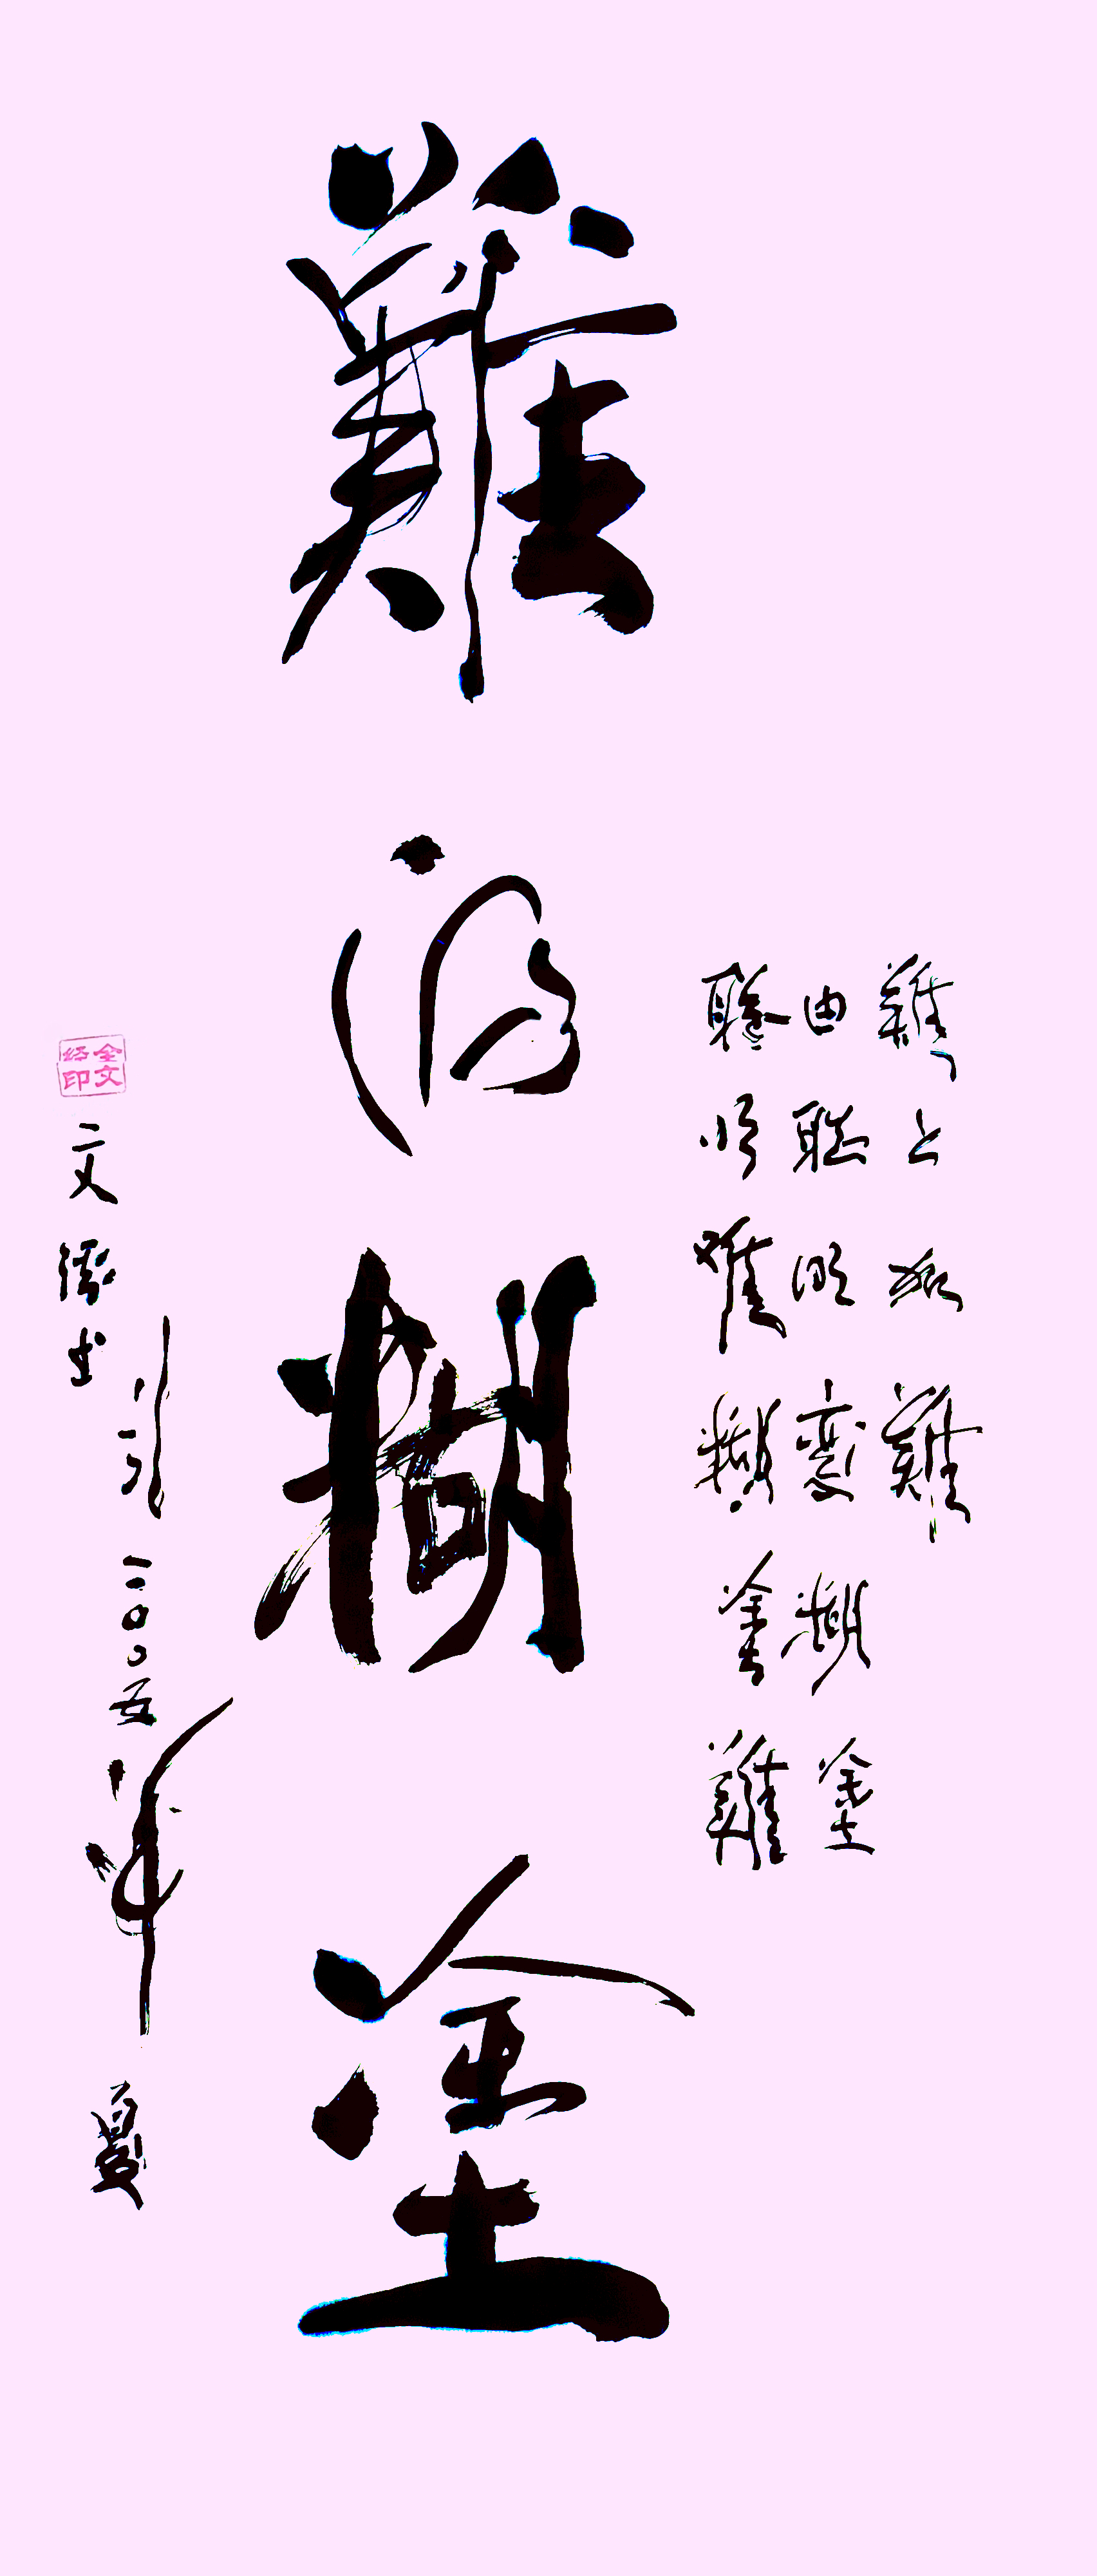 難上加難
由聰明變糊塗
聰明難糊塗難
難得糊塗
二〇〇五年夏
文書
全文经印